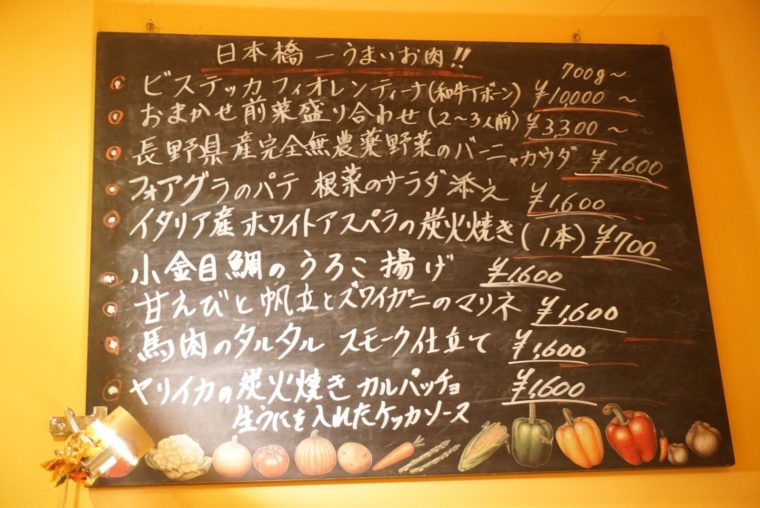 日本橋一うまいお肉!!
700g〜
ビステッカ フィオレンティーナ(和牛Tボーン) ¥10,000〜
おまかせ前菜盛り合わせ(2〜3人前) ¥3,300〜
長野県産完全無農薬野菜のバーニャカウダ ¥1,600
フォアグラのパテ 根菜のサラダ添え ¥1,600
イタリア産ホワイトアスペラの炭火焼き(1本) ¥700
小金目鯛のうろこ揚げ ¥1600
甘えびと帆立とズワイガニのマリネ ¥1,600
馬肉のタルタル スモーク仕立て ¥1,600
ヤリイカの炭火焼き カルパッチョ ¥1,600
生うにを入れたケッカソース